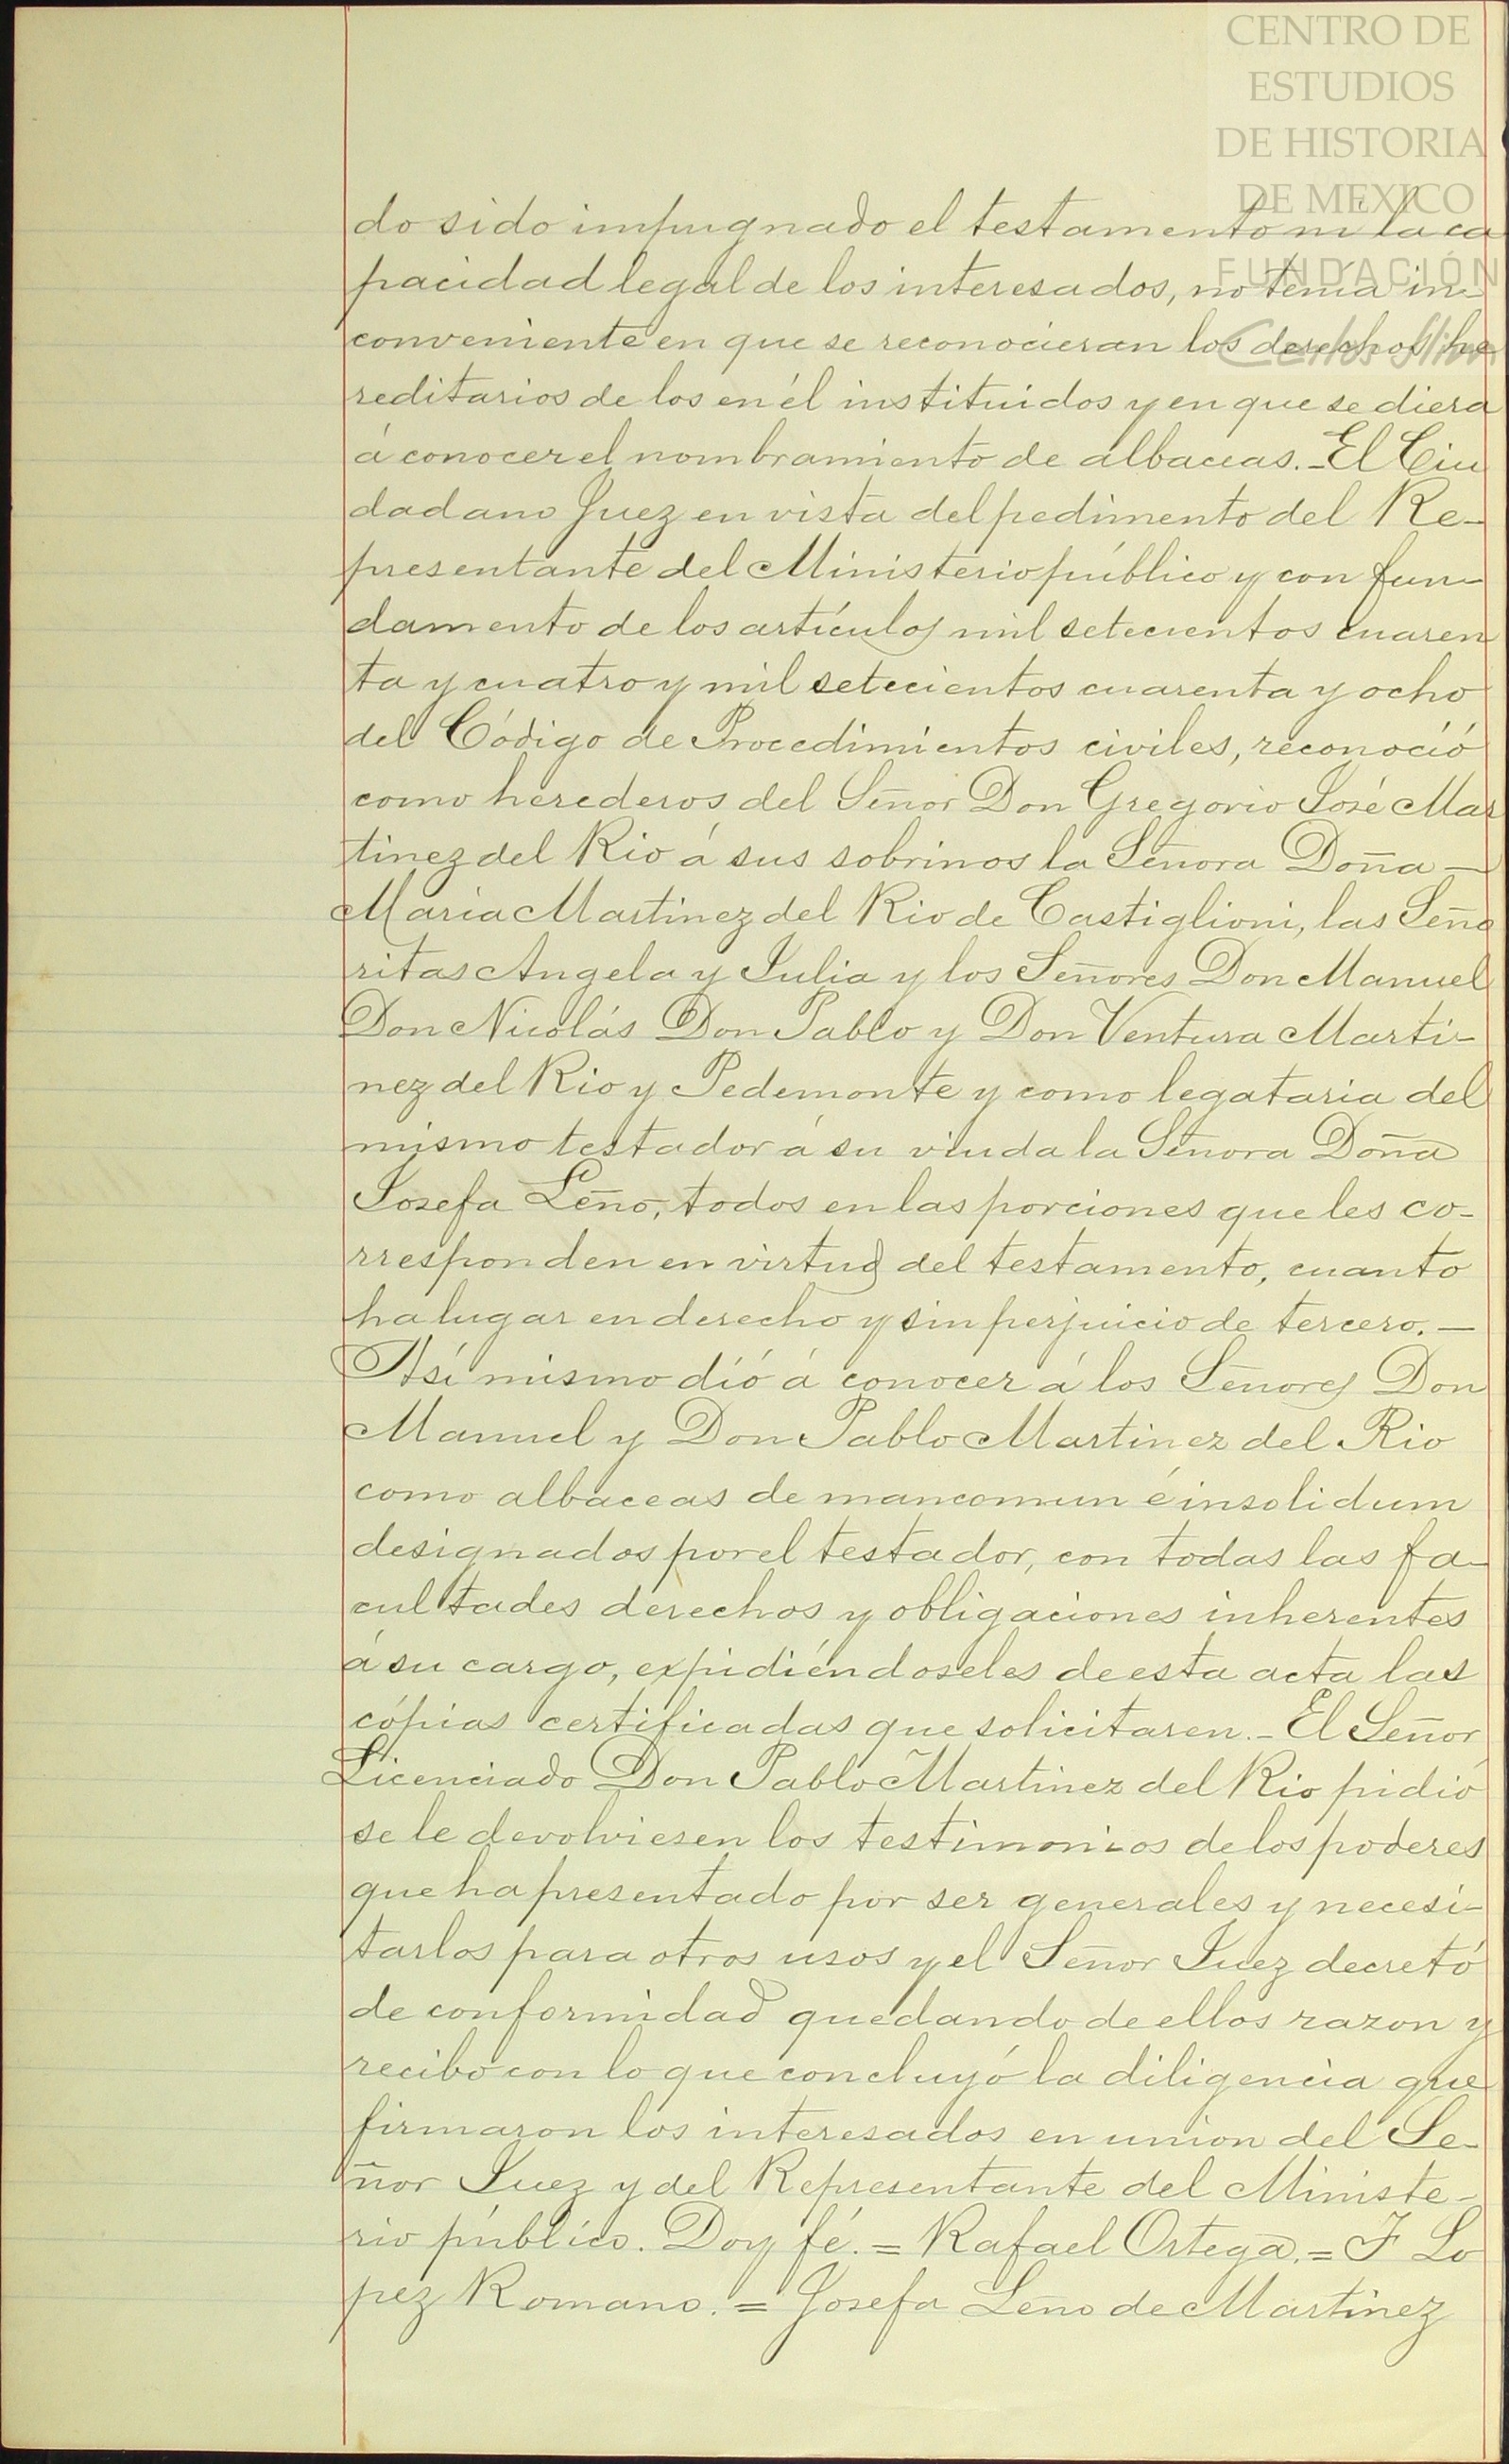 CENTRO DE
ESTUDIOS
DE HISTORIA
DE MEXICO
FUNDACIÓN
Carlos Slim
do sido impugnado el testamento ni la ca
pacidad legal de los interesados, no tenía in-
conveniente en que se reconocieran los derechos he
reditarios de los en él instituidos y en que se diera
á conocer el nombramiento de albaceas. - El Ciu
dadano Juez en vista del pedimento del Re-
presentante del Ministerio público y con fun-
damento de los artículos mil setecientos cuaren
ta y cuatro y mil setecientos cuarenta y ocho
del Código de Procedimientos civiles, reconoció
como herederos del Señor Don Gregorio José Mar
tinez del Rio á sus sobrinos la Señora Doña —
Maria Martinez del Rio de Castiglioni, las Seño
ritas Angela y Julia y los Señores Don Manuel
Don Nicolás Don Pablo y Don Ventura Marti-
nez del Rio y Pedemonte y como legataria del
mismo testador á su viuda la Señora Doña
Josefa Leño, todos en las porciones que les co-
rresponden en virtud del testamento, cuanto
ha lugar en derecho y sin perjuicio de tercero. —
Así mismo dió á conocer á los Señores Don
Manuel y Don Pablo Martinez del Rio
como albaceas de mancomun é insolidum
designados por el testador, con todas las fa-
cultades derechos y obligaciones inherentes
á su cargo, expidiéndoseles de esta acta las
cópias certificadas que solicitaren. - El Señor
Licenciado Don Pablo Martinez del Rio pidió
se le devolviesen los testimonios de los poderes
que ha presentado por ser generales y necesi-
tarlos para otros usos y el Señor Juez decretó
de conformidad quedando de ellos razon y
recibo con lo que concluyó la diligencia que
firmaron los interesados en union del Se-
ñor Juez y del Representante del Ministe-
rio público. Doy fé. = Rafael Ortega. = F Lo
pez Romano. = Josefa Leño de Martinez